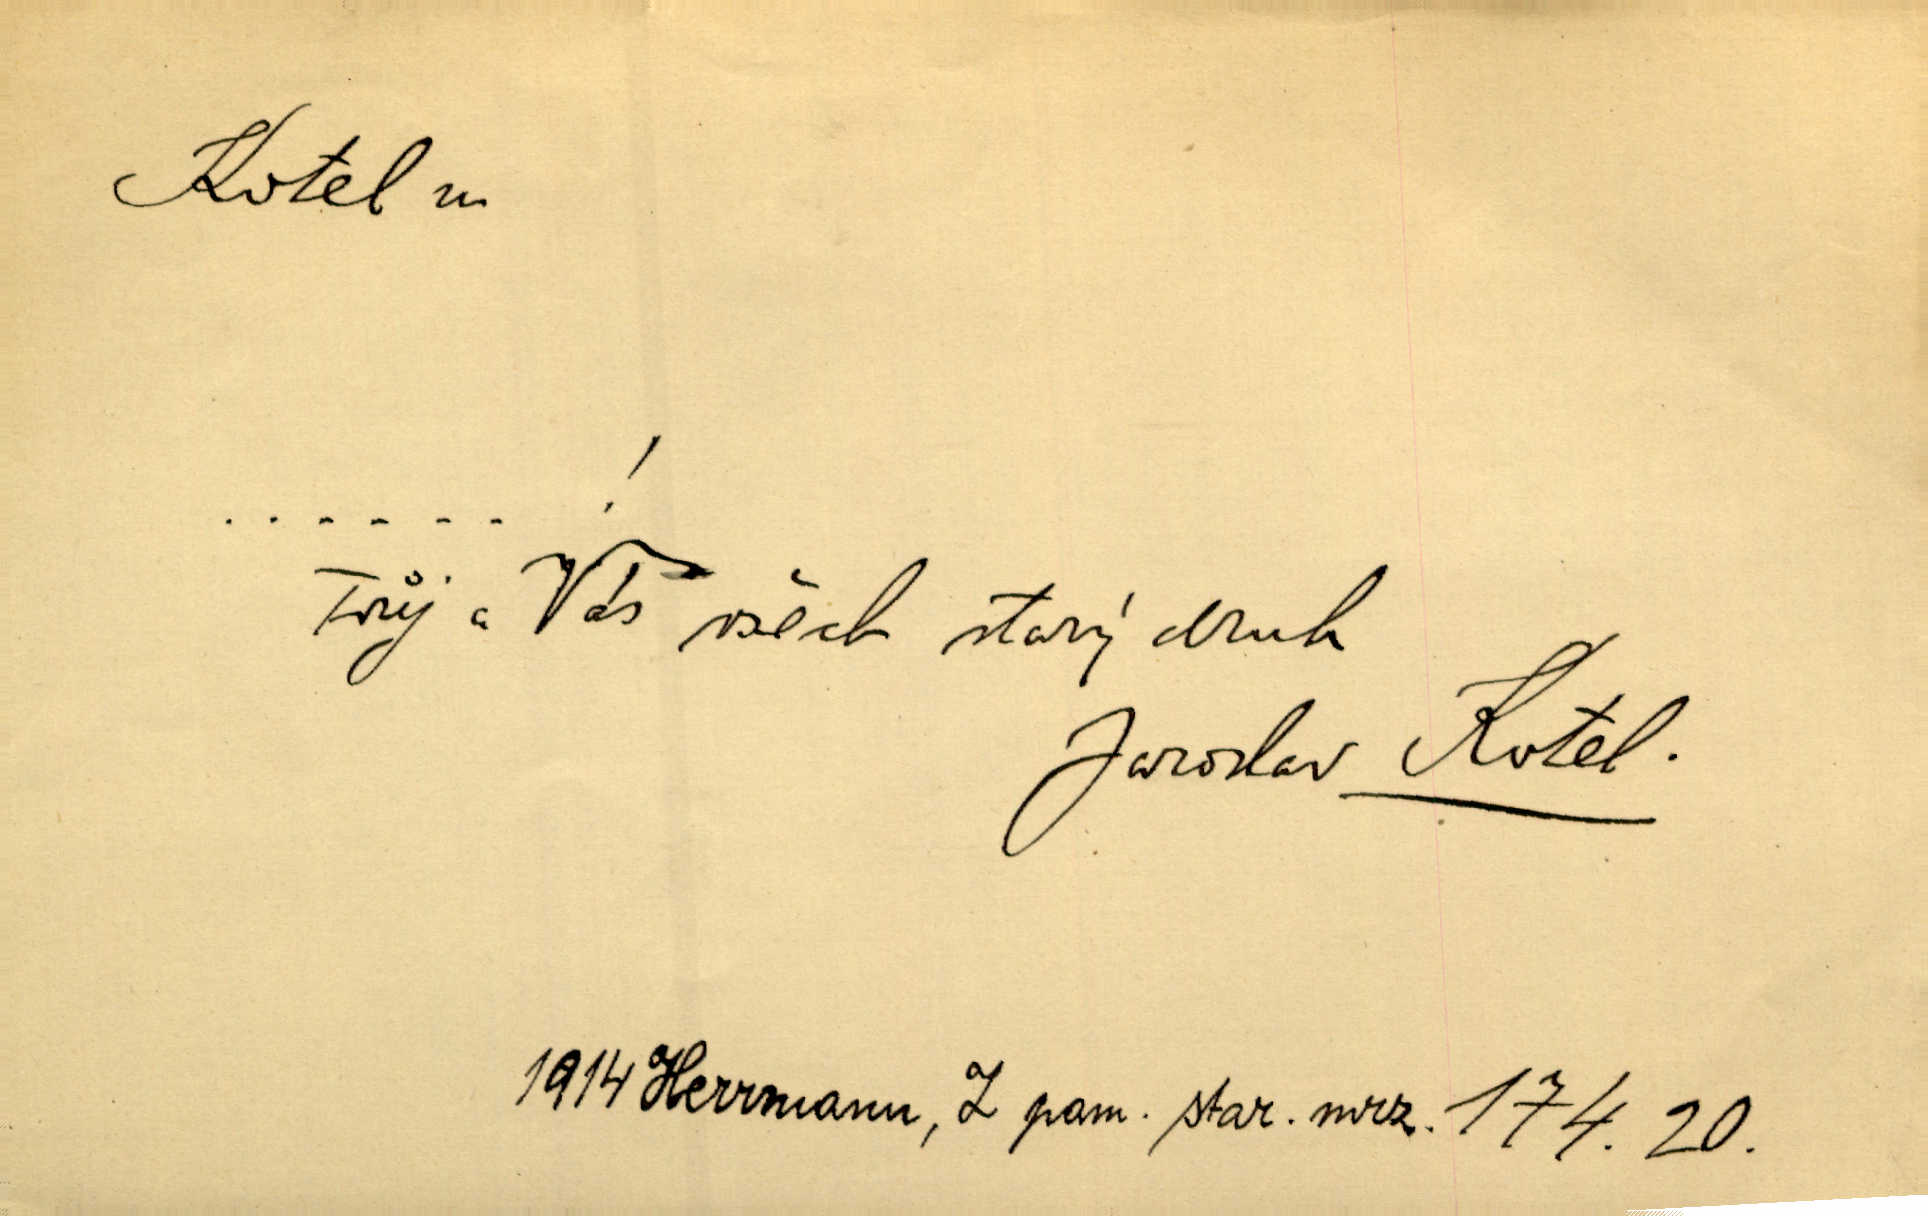 Kotel m
. . - - - - !
Tvůj a Vás všech starý druh
Jaroslav Kotel.
1914 Herrmann, Z pam. star. mrz. 174. 20.